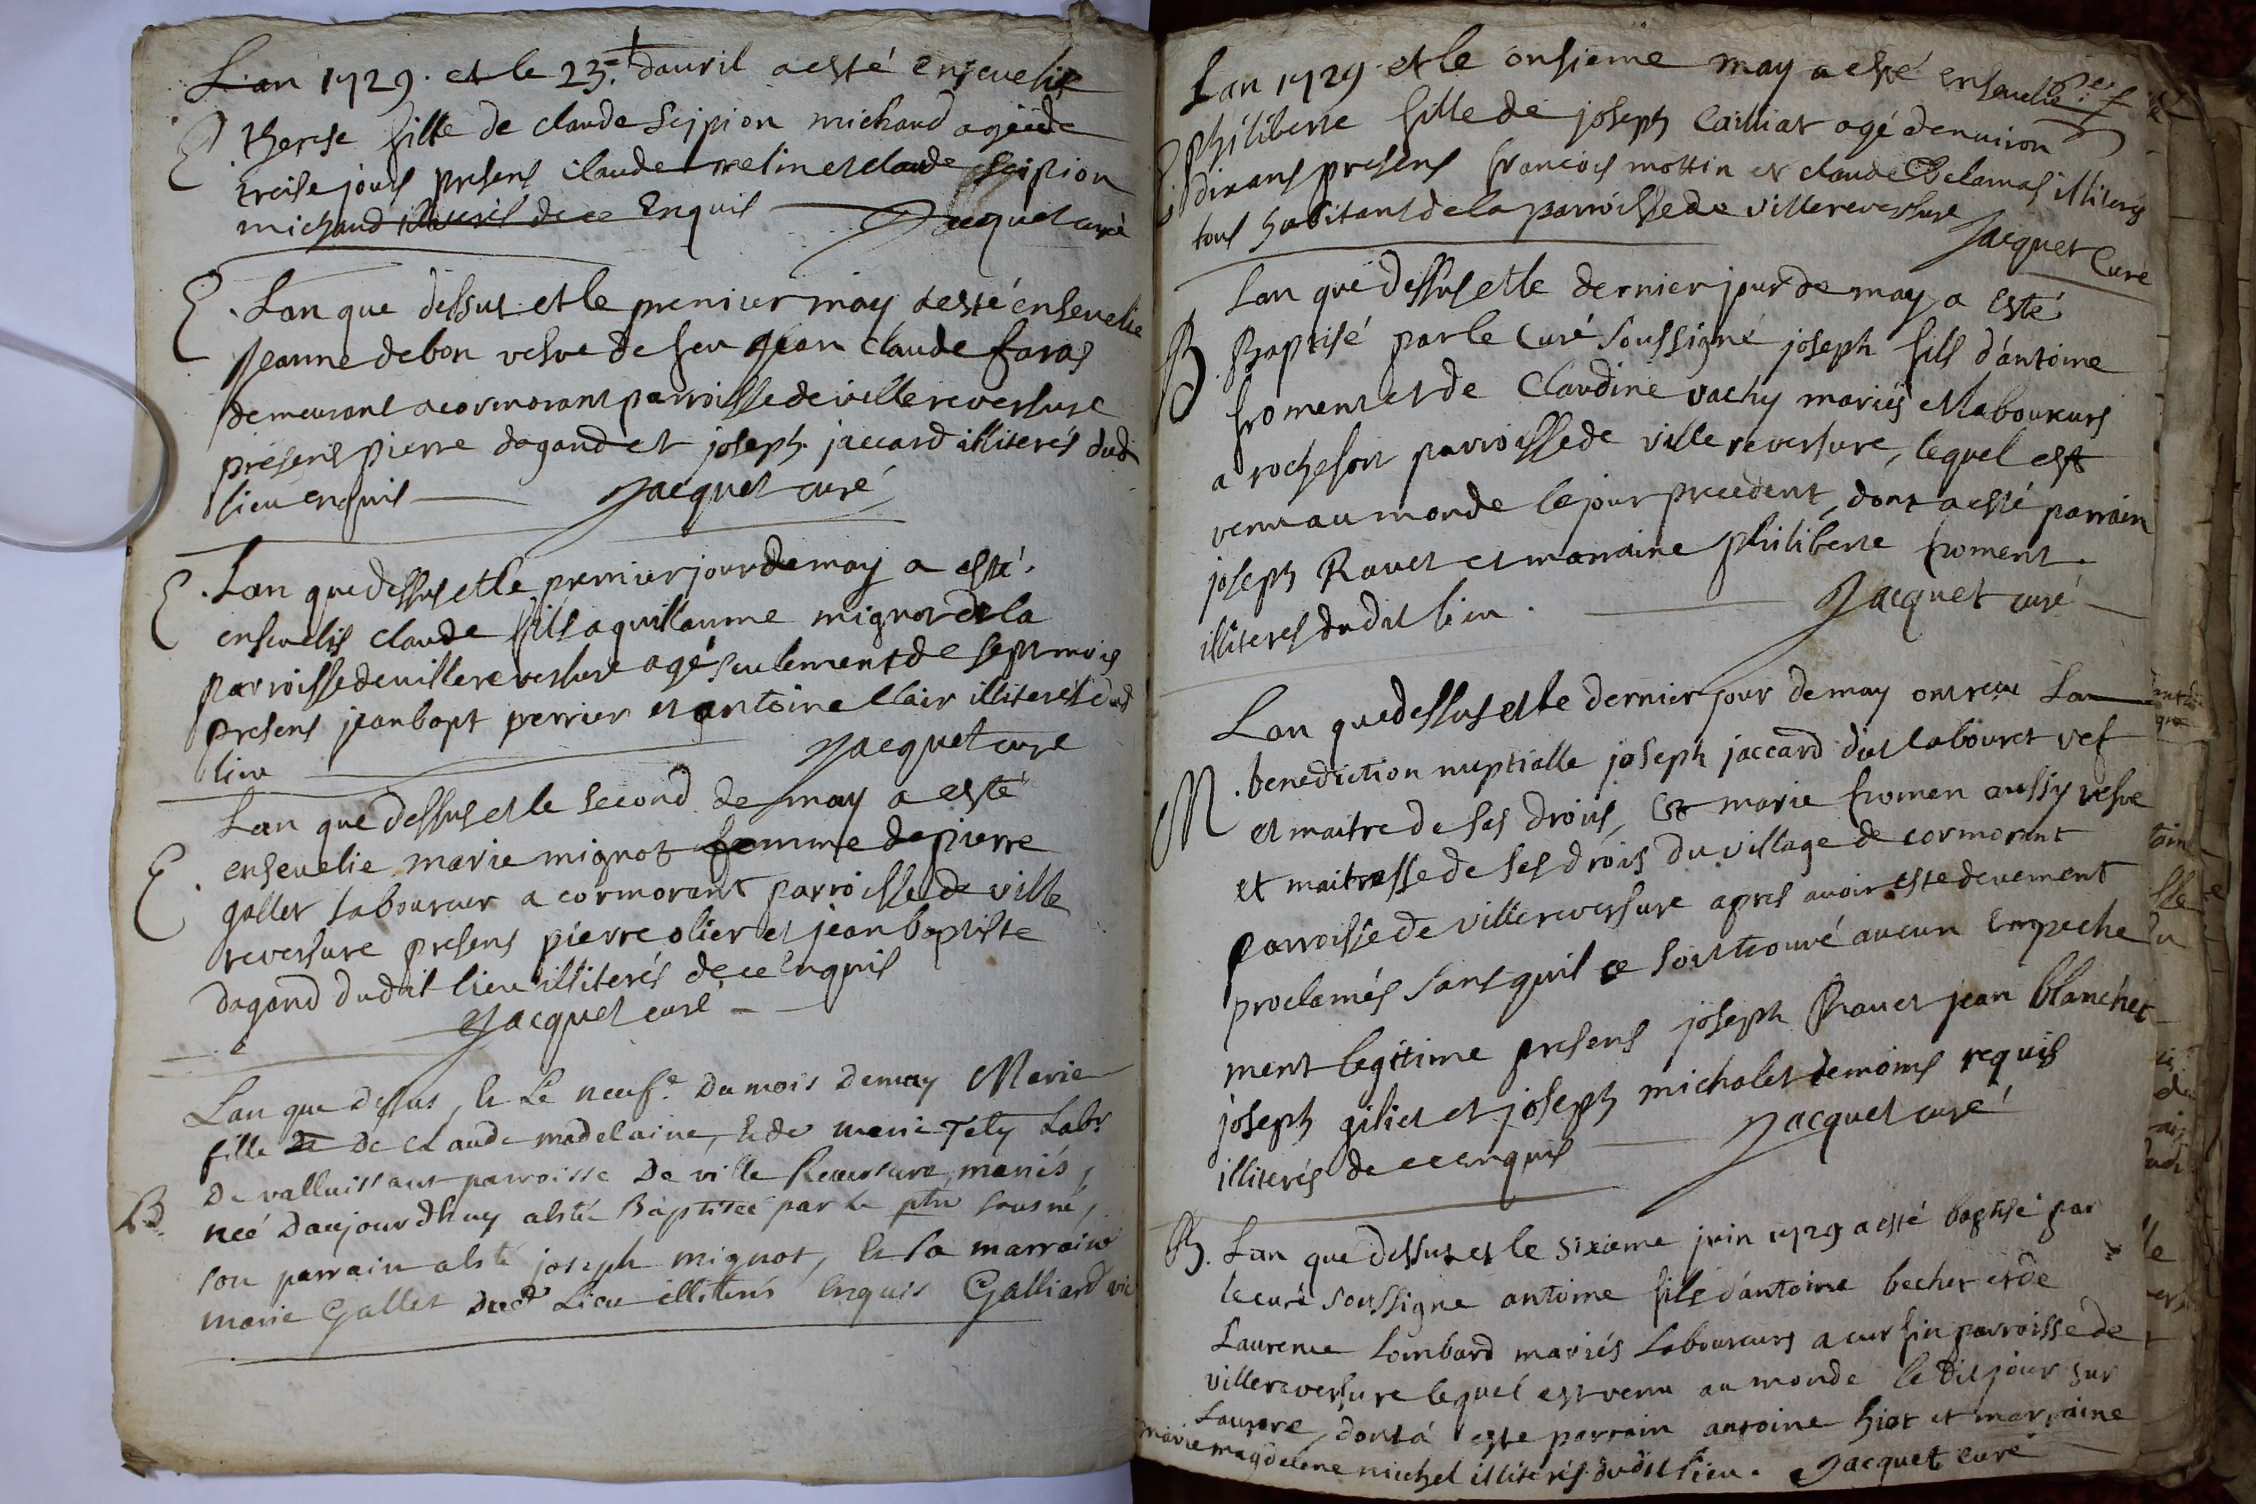 Lan 1729. et le 23e. davril a esté ensevelie
E Therese fille de claude scipion michaud agée de
treise jours presens claude melin et claude scipion
michaud illiterés de ce Enquis Jacquet curé
E. Lan que dessus et le premier may a esté ensevelie
Jeanne debon vefve de feu Jean claude faras
demeurant a cormorant parroisse de villereversure
presens pierre dagand et joseph jaccard illiterés dud
lieu enquis Jacquet curé
E. Lan que dessus et le premier jour de may a esté
ensevelis claude fils a guillaume mignot de la
parroisse de villereversure agé seulement de sept mois
presens jean bapt perrier et antoine Clair illiterés dud
lieu Jacquet curé
Lan que dessus et le second de may a esté
E. ensevelie marie mignot femme de pierre
gallet laboureur a cormorant parroisse de ville
reversure presens pierre olier et jean baptiste
dagand dudit lieu illiterés de ce enquis
Jacquet curé
Lan que dessus, et Le neufe. du mois de may Marie
fille de De claude madelaine, et de marie Tely Labr
De valluissant parroisse De ville Reversure, mariés,
B. neé daujourdhuy a esté Baptisée par le ptre sousné,
son parrain a esté joseph mignot, et sa marraine
marie Gallet dud Lieu illiterés enquis Galliard vic
Lan 1729 et le onsieme may a esté ensevelie
E. philiberte fille de joseph Cailliat agé denviron
dix ans presens francois mottin et claude illiterés
tous habitans de la parroisse de villereversure
Jacquet Curé
Lan que dessus et le dernier jour de may a esté
B Baptisé par le Curé soussigné joseph fils d'antoine
froment et de Claudine vachy mariés et laboureurs
a rochefort parroisse de villereversure, lequel est
venu au monde le jour precedent, dont a esté parrain
joseph Ravet et marraine philiberte froment.
illiteres dudit lieu. Jacquet curé
Lan que dessus et le dernier jour de may ont reçu La
M. benediction nuptialle joseph jaccard dit labouret vef
et maitre de ses droits, et marie fromen aussy vefve
et maitresse de ses drois du village de cormorant
parroisse de villereversure apres avoir este deuement
proclamés sans quil ce soit trouvé aucun empeche
ment legitime presens joseph Ravet jean blanchet
joseph gilict et joseph micholet temoins requis
illiterés de ce enquis Jacquet curé
B. Lan que dessus et le sixieme juin 1729 a esté baptisé par
le curé soussigne antoine fils d'antoine bechet et de
Laurence Lombard mariés Laboureurs a curfin parroisse de
villereversure lequel est venu au monde le dit jour sur
Laurore, dont a este parrain antoine hiot et marraine
marie magdelene michel illiterés dudit lieu. Jacquet curé